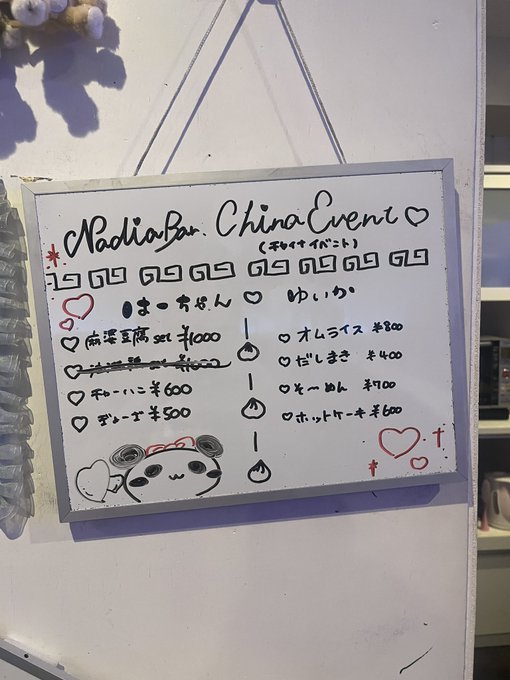 Nadia Bar. China Event
(チャイナイベント)
はーちゃん
麻婆豆腐 set ¥1000
チャーハン ¥600
ゆいか
オムライス ¥800
だしまき ¥400
そ〜めん ¥700
ホットケーキ ¥600